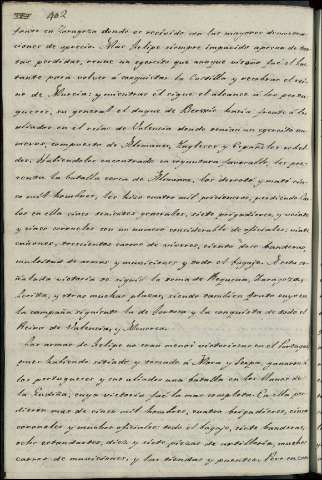 402
tanto en Zaragoza donde es recivido con las mayores demonstra-
ciones de aprecio. Mas Felipe siempre impavido apesar de tan-
tas perdidas, reune un egercito que aunque visoño fué el bas-
tante para volver á conquistar la Castilla y recobrar el rei-
no de Murcia: y mientras el sigue el alcance á los portu-
gueses, su general el duque de Berwic hacia frente á los
aliados en el reino de Valencia donde tenian un egercito nu-
meroso, compuesto de Alemanes, Ingleses y Españoles rebel-
des. Habiendolos encontrado en coyuntura favorable, les pre-
senta la batalla cerca de Almansa, los derrota y mató cin-
co mil hombres, les hizo cuatro mil prisioneros, perdiendo Car-
los en ella cinco tenientes generales, siete brigadieres, y veinte
y cinco coroneles con un numero considerable de oficiales, veinte
cañones, trescientos carros de viveres, ciento doce banderas,
multitud de armas y municiones y todo el bagaje. A esta se-
ñalada victoria se siguió la toma de Requena, Zaragoza,
Lerida, y otras muchas plazas, siendo tambien fruto suyo en
la campaña siguiente la de Tortosa y la conquista de todo el
Reino de Valencia, y Menorca.
Las armas de Felipe no eran menos victoriosas en el Portugal
pues habiendo sitiado y tomado á Mora y Serpa, ganaron á
los portugueses y sus aliados una batalla en los llanos de
la Gudiña, cuya victoria fué la mas completa. En ella per-
dieron mas de cinco mil hombres, cuatro brigadieres, cinco
coroneles y muchos oficiales; todo el bagaje, siete banderas,
ocho estandartes, diez y siete piezas de artilleria, muchos
carros de municiones, y las tiendas y puentes. Pero en